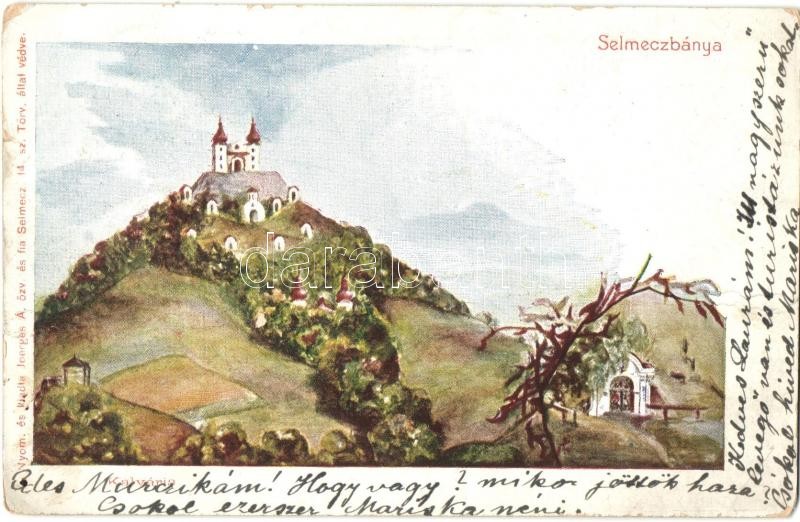 Selmeczbánya
Nyom. és kiadta Joerges Á. özv. és fia Selmecz. 14. sz. Törv. által védve.
darabanth.com
Kálvária
Édes Murczikám! Hogy vagy? mikor jöttök haza?
Csókol ezerszer Mariska néni.
Kedves Laurám! Itt nagyszerű
levegő van és turistázunk sokat.
Csókol híved Mariska